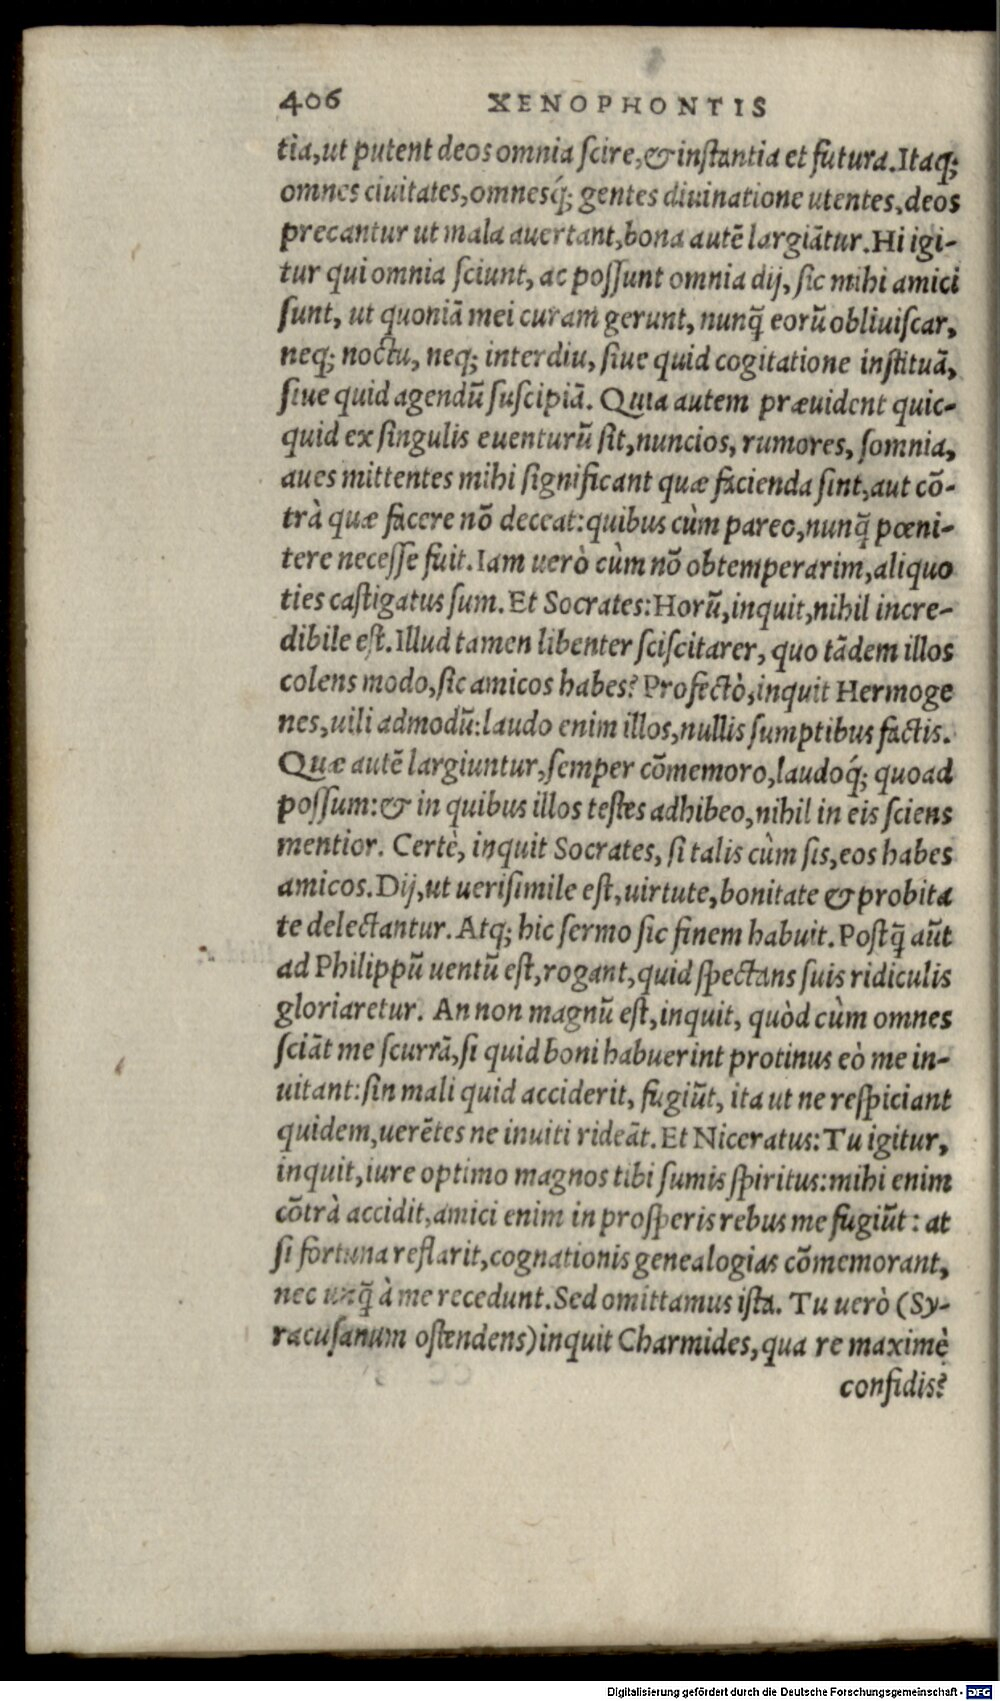 406 XENOPHONTIS
tia,ut putent deos omnia ſcire,& inſtantia et futura.Itaq;
omnes ciuitates,omnesq́; gentes diuinatione utentes,deos
precantur ut mala auertant,bona autē largiātur.Hi igi-
tur qui omnia ſciunt, ac poſſunt omnia dij, ſic mihi amici
ſunt, ut quoniā mei curam gerunt, nunq̃ eorū obliuiſcar,
neq; noctu, neq; interdiu, ſiue quid cogitatione inſtituā,
ſiue quid agendū ſuſcipiā. Quia autem præuident quic-
quid ex ſingulis euenturū ſit,nuncios, rumores, ſomnia,
aues mittentes mihi ſignificant quæ facienda ſint,aut cō-
trà quæ facere nō deceat:quibus cùm pareo,nunq̃ pœni-
tere neceſſe fuit.Iam uerò cùm nō obtemperarim,aliquo
ties caſtigatus ſum. Et Socrates:Horū,inquit,nihil incre-
dibile eſt.Illud tamen libenter ſciſcitarer, quo tādem illos
colens modo,ſic amicos habes? Profectò,inquit Hermoge
nes,uili admodū:laudo enim illos,nullis ſumptibus factis.
Quæ autē largiuntur,ſemper cōmemoro,laudoq́; quoad
poſſum:& in quibus illos teſtes adhibeo,nihil in eis ſciens
mentior. Certè, inquit Socrates, ſi talis cùm ſis,eos habes
amicos.Dij,ut ueriſimile eſt,uirtute,bonitate & probita
te delectantur. Atq; hic ſermo ſic finem habuit. Poſtq̃ aūt
ad Philippū uentū eſt,rogant,quid ſpectans ſuis ridiculis
gloriaretur. An non magnū eſt,inquit, quòd cùm omnes
ſciāt me ſcurrā,ſi quid boni habuerint protinus eò me in-
uitant:ſin mali quid acciderit, fugiūt, ita ut ne reſpiciant
quidem,uerētes ne inuiti rideāt. Et Niceratus:Tu igitur,
inquit,iure optimo magnos tibi ſumis ſpiritus:mihi enim
cōtrà accidit,amici enim in proſperis rebus me fugiūt: at
ſi fortuna reflarit,cognationis genealogias cōmemorant,
nec unq̃ à me recedunt.Sed omittamus iſta. Tu uerò (Sy-
racuſanum oſtendens)inquit Charmides,qua re maximè
confidis?
Digitalisierung gefördert durch die Deutsche Forschungsgemeinschaft - DFG